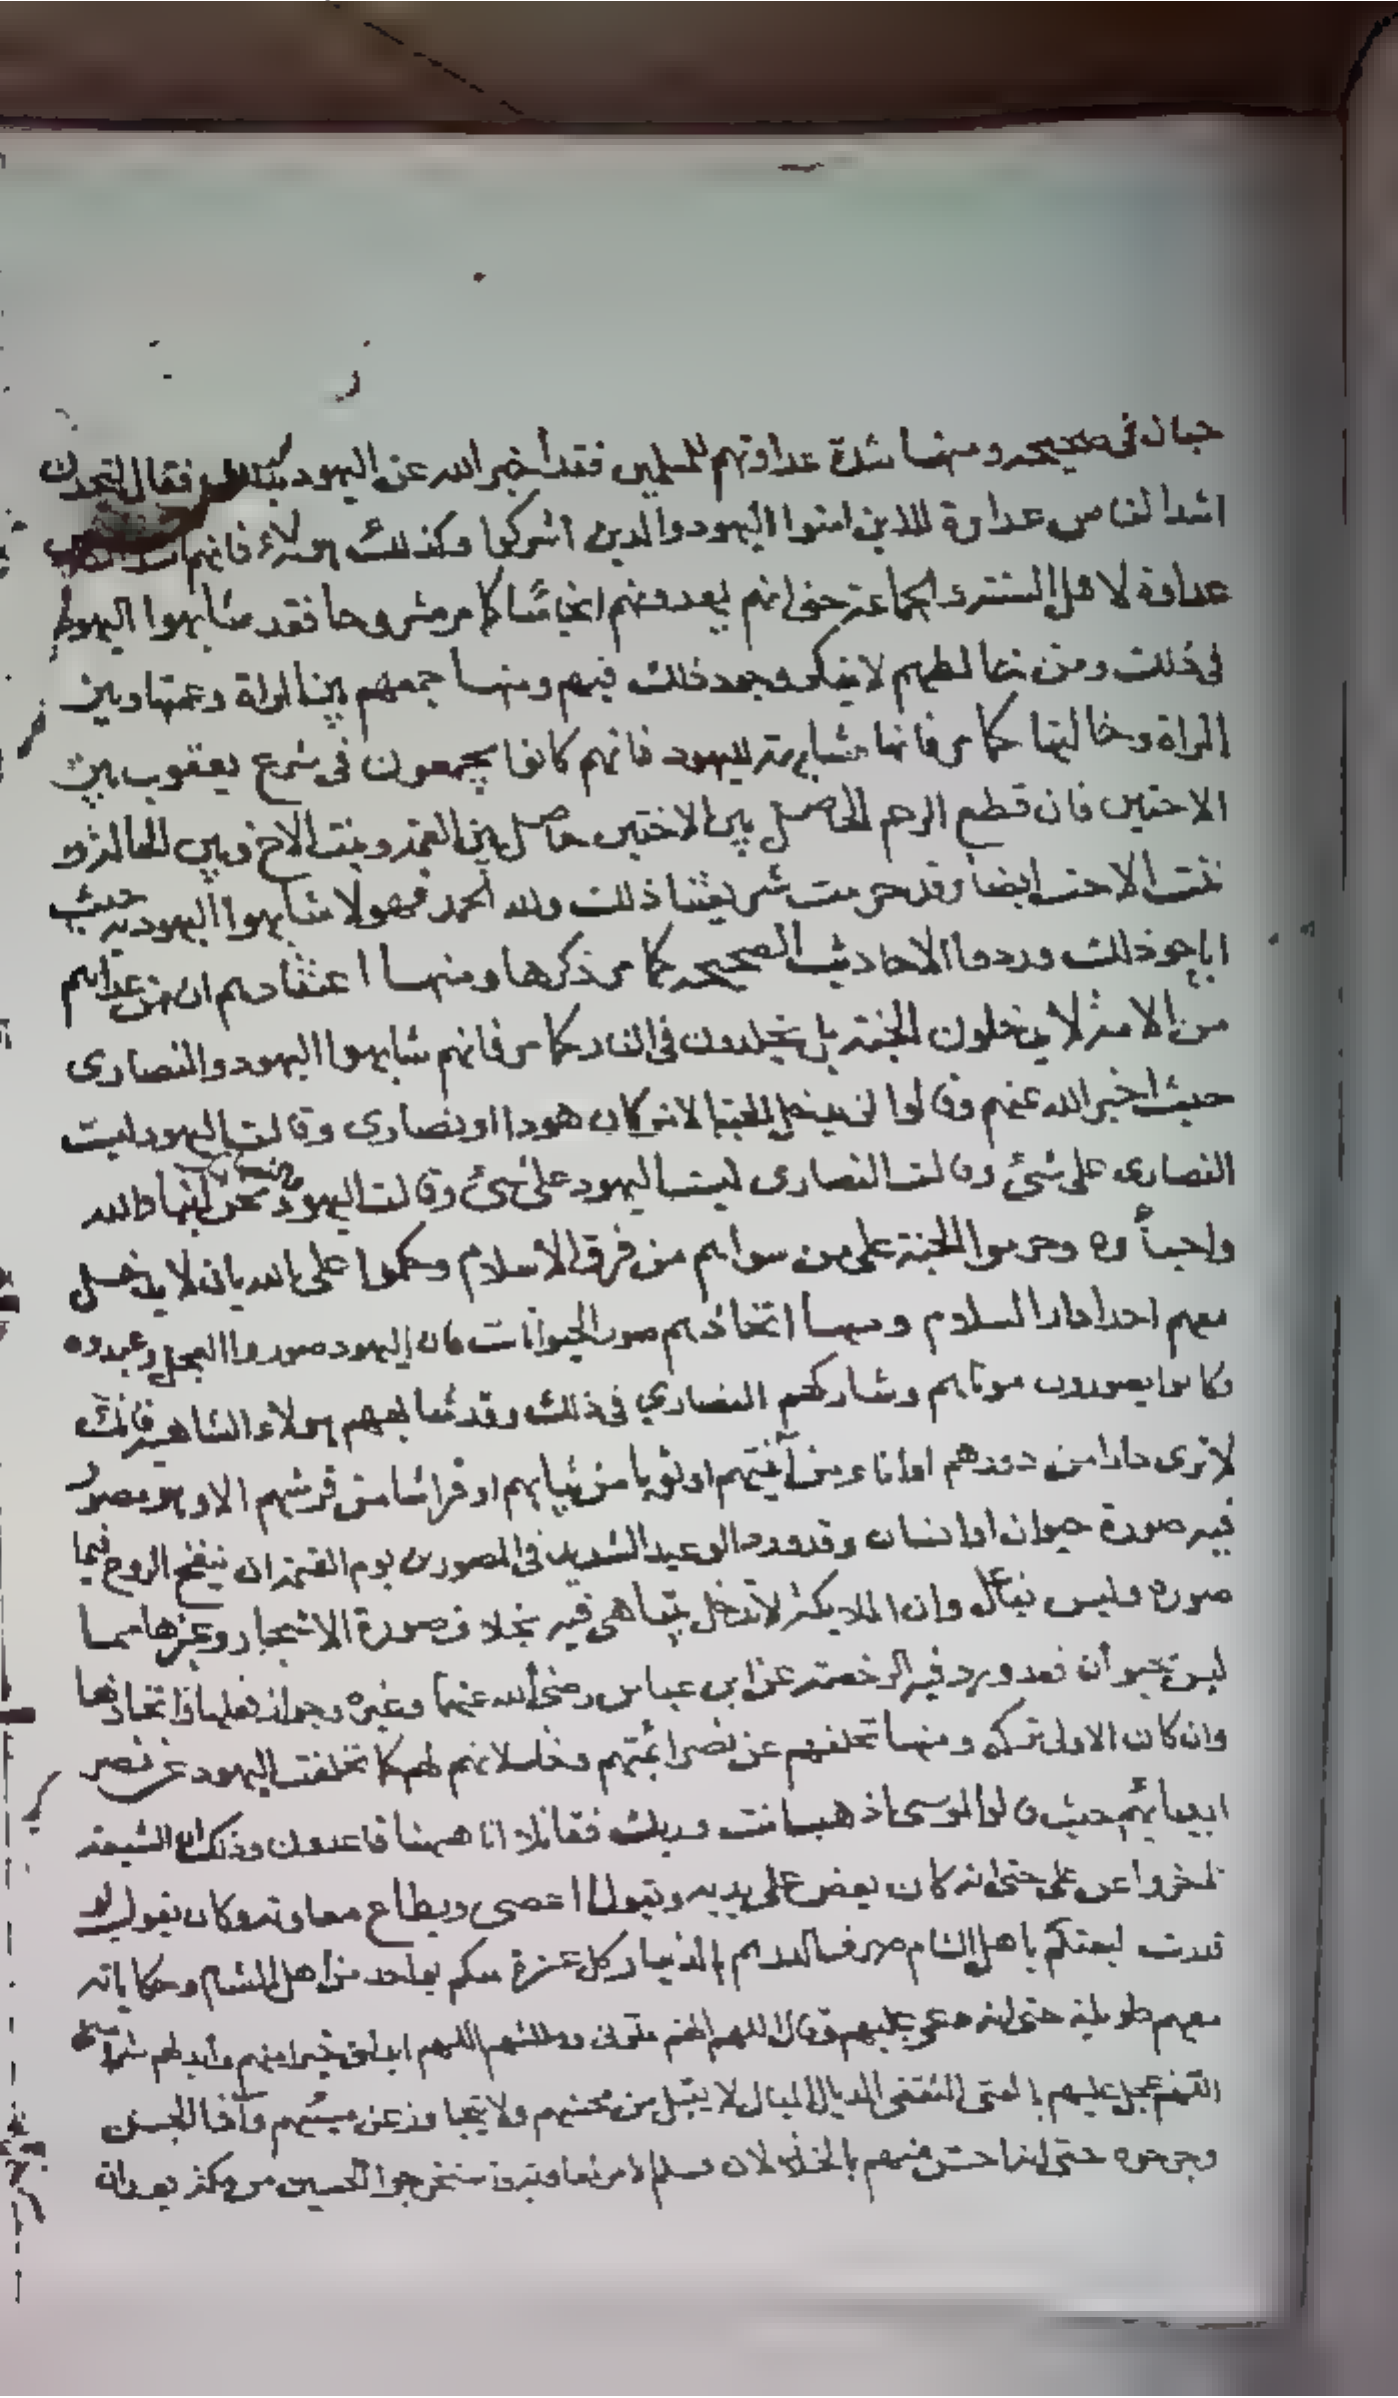 حبان في صحيحه ومنها شدة عداوتهم للمسلمين فقد أخبر الله عن اليهود فقال لتجدن
اشد الناس عداوة للذين امنوا اليهود والذين اشركوا وكذلك هولاء فانهم
عداوة لاهل السنة والجماعة حتى انهم يعدونهم انجاسًا كما مر مشروحا فقد شابهوا اليهود
في ذلك ومن خالطهم لا ينكر وجود ذلك فيهم ومنها جمعهم بين المراة وعمتها وبين
المراة وخالتها كما مر فانها مشابهة لليهود فانهم كانوا يجمعون في شرع يعقوب بين
الاختين فان قطع الرحم الحاصل بين الاختين حاصل بين العمة وبنت الاخ وبين الخالة و
بنت الاخت ايضا وقد حرمت شريعتنا ذلك ولله الحمد فهولا شابهوا اليهود حيث
اباحوا ذلك وردوا الاحاديث الصحيحة كما مر ذكرها ومنها اعتقادهم ان من عداهم
من الامة لا يدخلون الجنة بل يخلدون في النار كما مر فانهم شابهوا اليهود والنصارى
حيث اخبر الله عنهم وقالوا لن يدخل الجنة الا من كان هودا او نصارى وقالت اليهود ليست
النصارى على شئ وقالت النصارى ليست اليهود على شئ وقالت اليهود والنصارى نحن ابنأ الله
واحبأوه وحرموا الجنة على من سواهم من فرق الاسلام وحكموا على الله بان لا يدخل
معهم احدا دار السلام ومنها اتخاذهم صور الحيوانات فان اليهود صوروا العجل وعبدوه
وكانوا يصورون موتاهم وشاركتهم النصاري في ذلك وقد شابههم هولاء الشاهية فانك
لا ترى دارا من دورهم اواناء من آنيتهم او ثوبا من ثيابهم او فراشا من فرشهم الا وهو مصور
فيه صورة حيوان او انسان وقد ورد الوعيد الشديد في المصورين يوم القيمة ان ينفخ الروح فيما
صوره وليس بفاعل وان الملايكة لا تدخل بيتا هي فيه بخلاف صورة الاشجار وغيرها مما
ليس بحيوان فقد ورد فيه الرخصة عن ابن عباس رضي الله عنهما وغيره وجواز فعلها واتخاذها
وان كان الاولى تركه ومنها تخلفهم عن نصر ائمتهم وخذلانهم لهم كما تخلفت اليهود عن نصر
انبيائهم حيث قالوا لموسى اذهب انت وربك فقاتلا انا ههنا قاعدون وذلك ان الشيعة
تاخروا عن علي حتى انه كان يعض على يديه ويقول اعصى ويطاع معاوية وكان يقول لو
قدرت لبعتكم باهل الشام صرف الدرهم بالدينار كل عشرة منكم بواحد من اهل الشام وحكاياته
معهم طويلة حتى انه دعى عليهم وقال اللهم انهم ملوني ومللتهم اللهم ابدلني خيرا منهم وأبدلهم شرا
اللهم عجل عليهم بالفتى الثقفي الذيال الميال لا يقبل من محسنهم ولا يتجاوز عن مسيئهم وآذوا الحسن
وجرحوه حتى انه احس منهم بالخذلان فسلم الامر لمعاوية واستخرجوا الحسين من مكة بعد ان